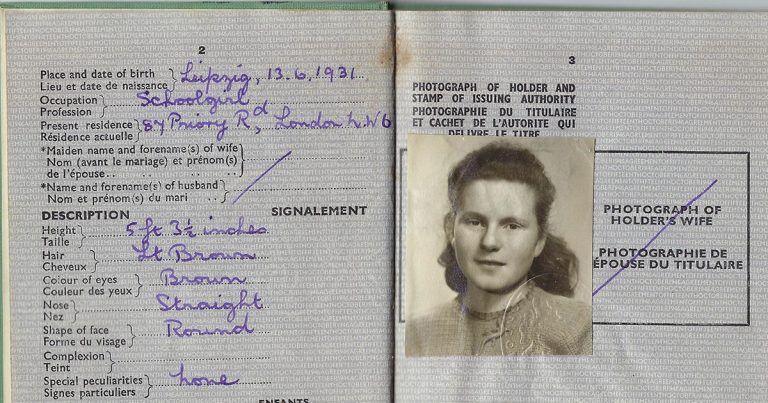 2
Place and date of birth } Leipzig, 13.6.1931
Lieu et date de naissance
Occupation } Schoolgirl
Profession
Present residence } 87 Priory Rd, London N.W6
Résidence actuelle
*Maiden name and forename(s) of wife
Nom (avant le mariage) et prénom(s)
de l'épouse
*Name and forename(s) of husband
Nom et prénom(s) du mari
DESCRIPTION SIGNALEMENT
Height } 5 ft 3½ inches
Taille
Hair } Lt Brown
Cheveux
Colour of eyes } Brown
Couleur des yeux
Nose } Straight
Nez
Shape of face } Round
Forme du visage
Complexion
Teint
Special peculiarities } none
Signes particuliers
ENFANTS
3
PHOTOGRAPH OF HOLDER AND
STAMP OF ISSUING AUTHORITY
PHOTOGRAPHIE DU TITULAIRE
ET CACHET DE L'AUTORITE QUI
DELIVRE LE TITRE
PHOTOGRAPH OF
HOLDER'S WIFE
PHOTOGRAPHIE DE
ÉPOUSE DU TITULAIRE